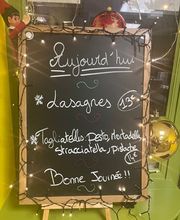 Aujourd'hui
* Lasagnes 13€
* Tagliatelle Pesto, Mortadella
Stracciatella, Pistache
14€
Bonne Journée !!